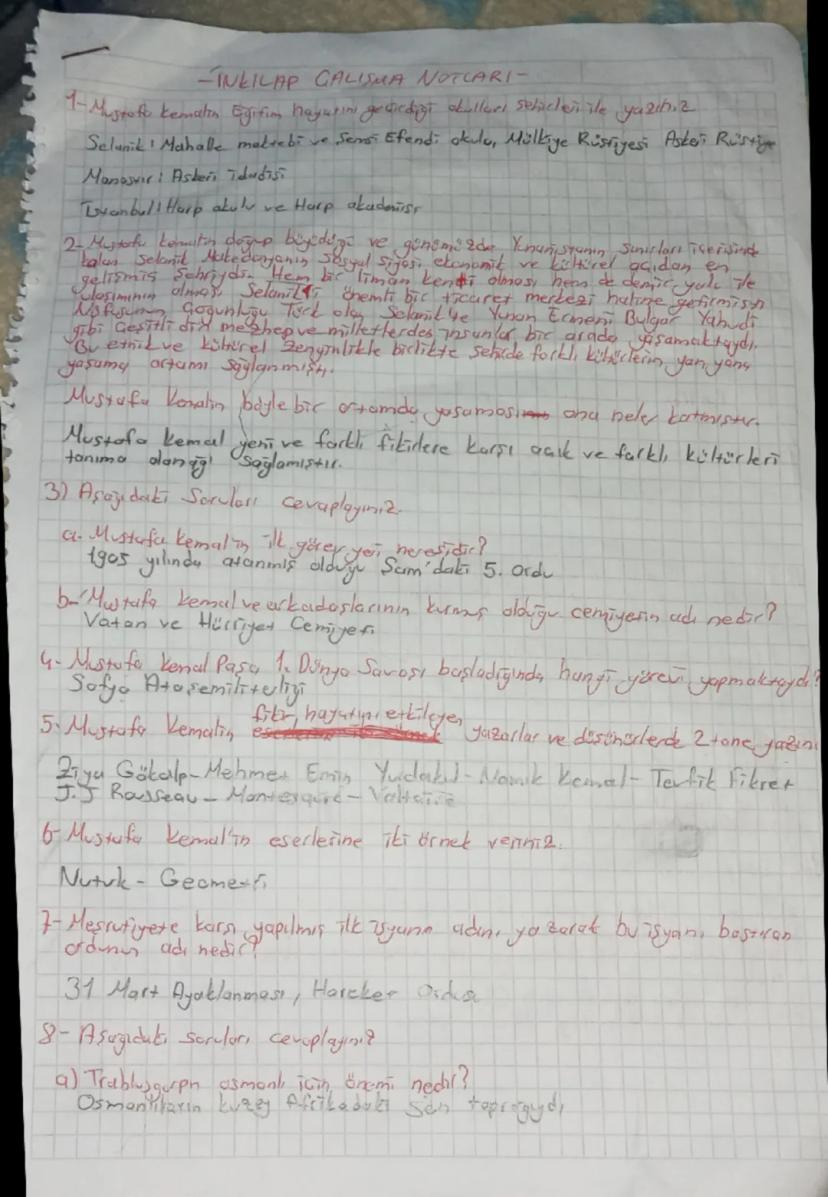 - İNKILAP ÇALIŞMA NOTLARI -
1- Mustafa kemalin Eğitim hayatını geçirdiği okulları şehirleri ile yazınız
Selanik: Mahalle mektebi ve Şemsi Efendi okulu, Mülkiye Rüştiyesi Askeri Rüştiye
Manastır: Askeri idadisi
İstanbul: Harp okulu ve Harp akademisi
2- Mustafa kemalin doğup büyüdüğü ve günümüzde Yunanistanın sınırları içerisinde
kalan Selanik Makedonyanın sosyal siyasi ekonomik ve kültürel açıdan en
gelişmiş şehriydi. Hem bir liman kenti olması hem de demir yolu ile
ulaşımının olması Selaniği önemli bir ticaret merkezi haline getirmiştir
Nüfusunun Çoğunluğu Türk olan Selanikte Yunan Ermeni Bulgar Yahudi
gibi Çeşitli din mezhep ve milletlerdes insanlar bir arada yaşamaktaydı.
Bu etnik ve kültürel zenginlikle birlikte şehirde farklı kültürlerin yan yana
yaşama ortamı sağlanmıştı.
Mustafa Kemalin böyle bir ortamda yaşaması ona neler katmıştır.
Mustafa Kemal yeni ve farklı fikirlere karşı açık ve farklı kültürleri
tanıma olanağı sağlamıştır.
3) Aşağıdaki Soruları cevaplayınız.
a. Mustafa Kemal'in ilk görev yeri neresidir?
1905 yılında atanmış olduğu Şam'daki 5. ordu
b- Mustafa Kemal ve arkadaşlarının kurmuş olduğu cemiyetin adı nedir?
Vatan ve Hürriyet Cemiyeti
4. Mustafa Kemal Paşa 1. Dünya Savaşı başladığında hangi görevi yapmaktaydı?
Sofya Ataşemiliterliği
5. Mustafa Kemalin fikir hayatını etkileyen yazarlar ve düşünürlerde 2 tane yazını
Ziya Gökalp - Mehmet Emin Yurdakul - Namık Kemal - Tevfik Fikret
J.J Rousseau - Montesquieu - Voltaire
6- Mustafa Kemal'in eserlerine iki örnek veriniz.
Nutuk - Geometri
7- Meşrutiyete karşı yapılmış ilk isyanın adını yazarak bu isyanı bastıran
ordunun adı nedir?
31 Mart Ayaklanması, Hareket Ordusu
8- Aşağıdaki soruları cevaplayını?
a) Trablusgarpn osmanlı için önemi nedir?
Osmanlıların kuzey Afrikadaki son toprağıydı